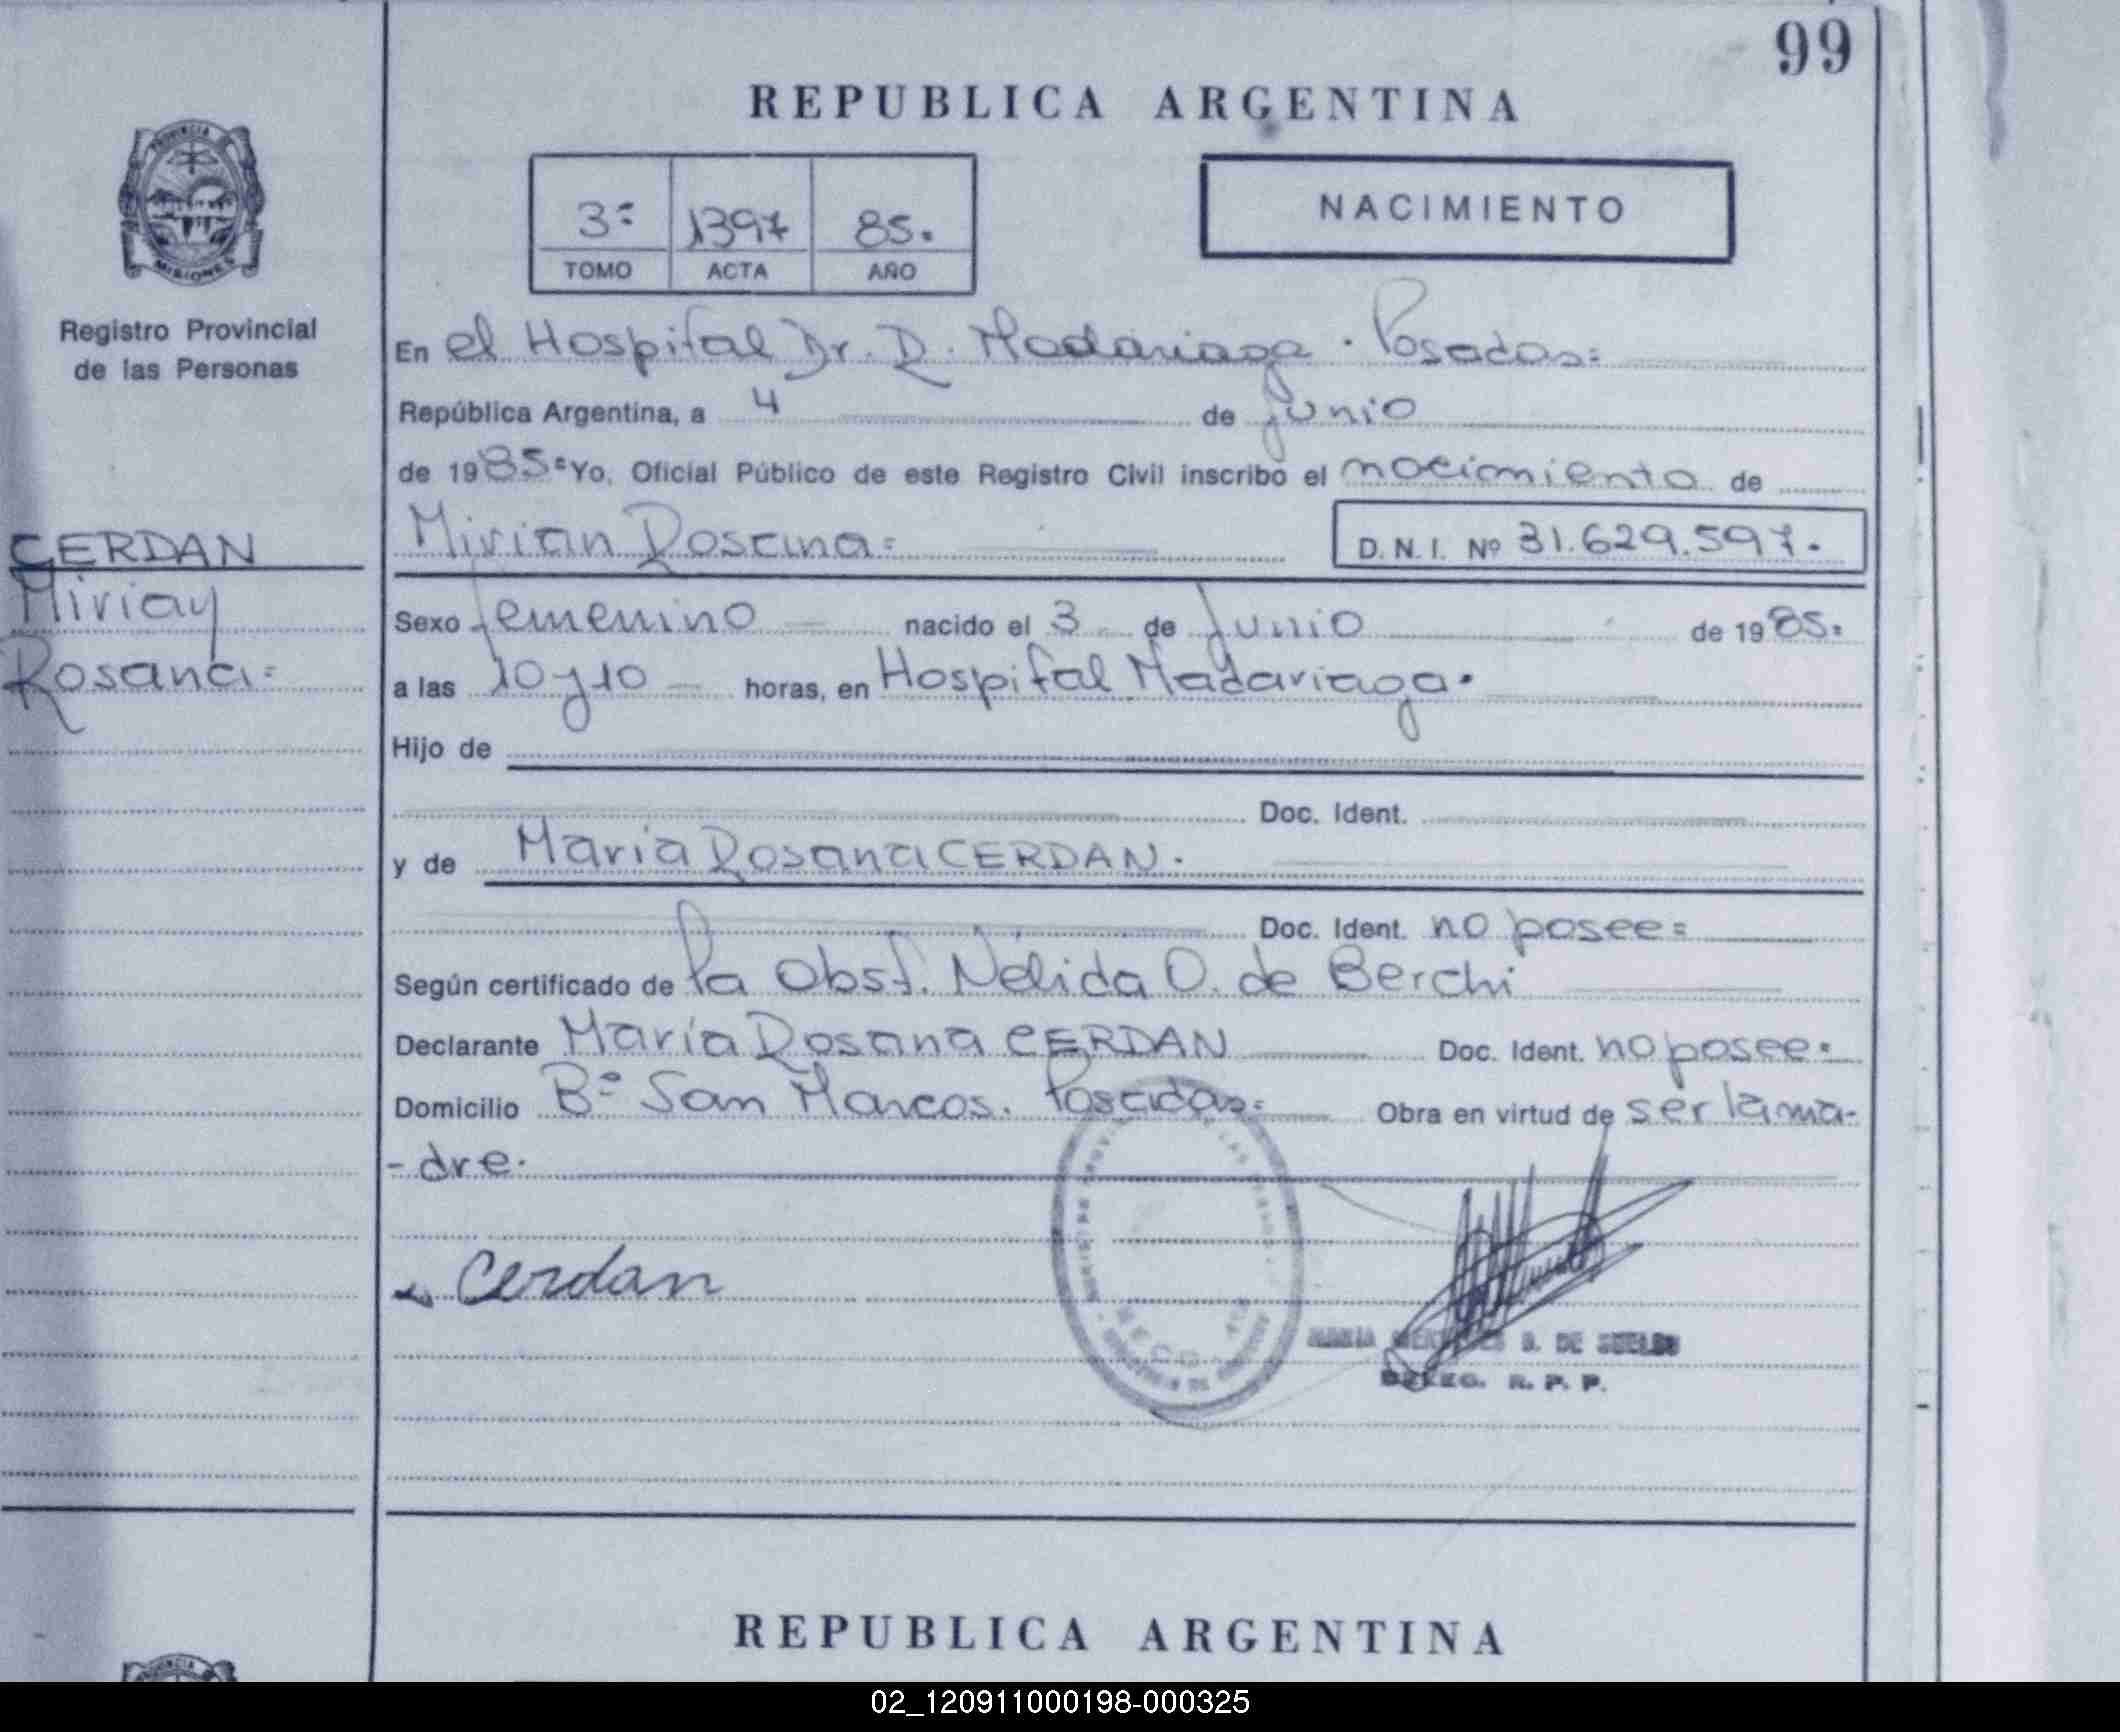 99
REPUBLICA ARGENTINA
PROVINCIA DE
MISIONES
Registro Provincial
de las Personas
3º 1397 85.
TOMO ACTA AÑO
NACIMIENTO
En el Hospital Dr. R. Madariaga. Posadas=
República Argentina, a 4 de junio
de 1985= Yo, Oficial Público de este Registro Civil inscribo el nacimiento de
Mirian Rosana= D.N.I. Nº 31.629.597.
CERDAN
Mirian
Rosana=
Sexo femenino nacido el 3 de Junio de 1985=
a las 10 y 10 horas, en Hospital Madariaga.
Hijo de
Doc. Ident.
y de María Rosana CERDAN.
Doc. Ident. no posee=
Según certificado de la Obst. Nélida O. de Berchi
Declarante María Rosana CERDAN Doc. Ident. no posee=
Domicilio Bº San Marcos. Posadas= Obra en virtud de ser la ma-
-dre.
Cerdan
MARIA D. DE
DELEG. R. P. P.
REPUBLICA ARGENTINA
PROVINCIA
02_120911000198-000325